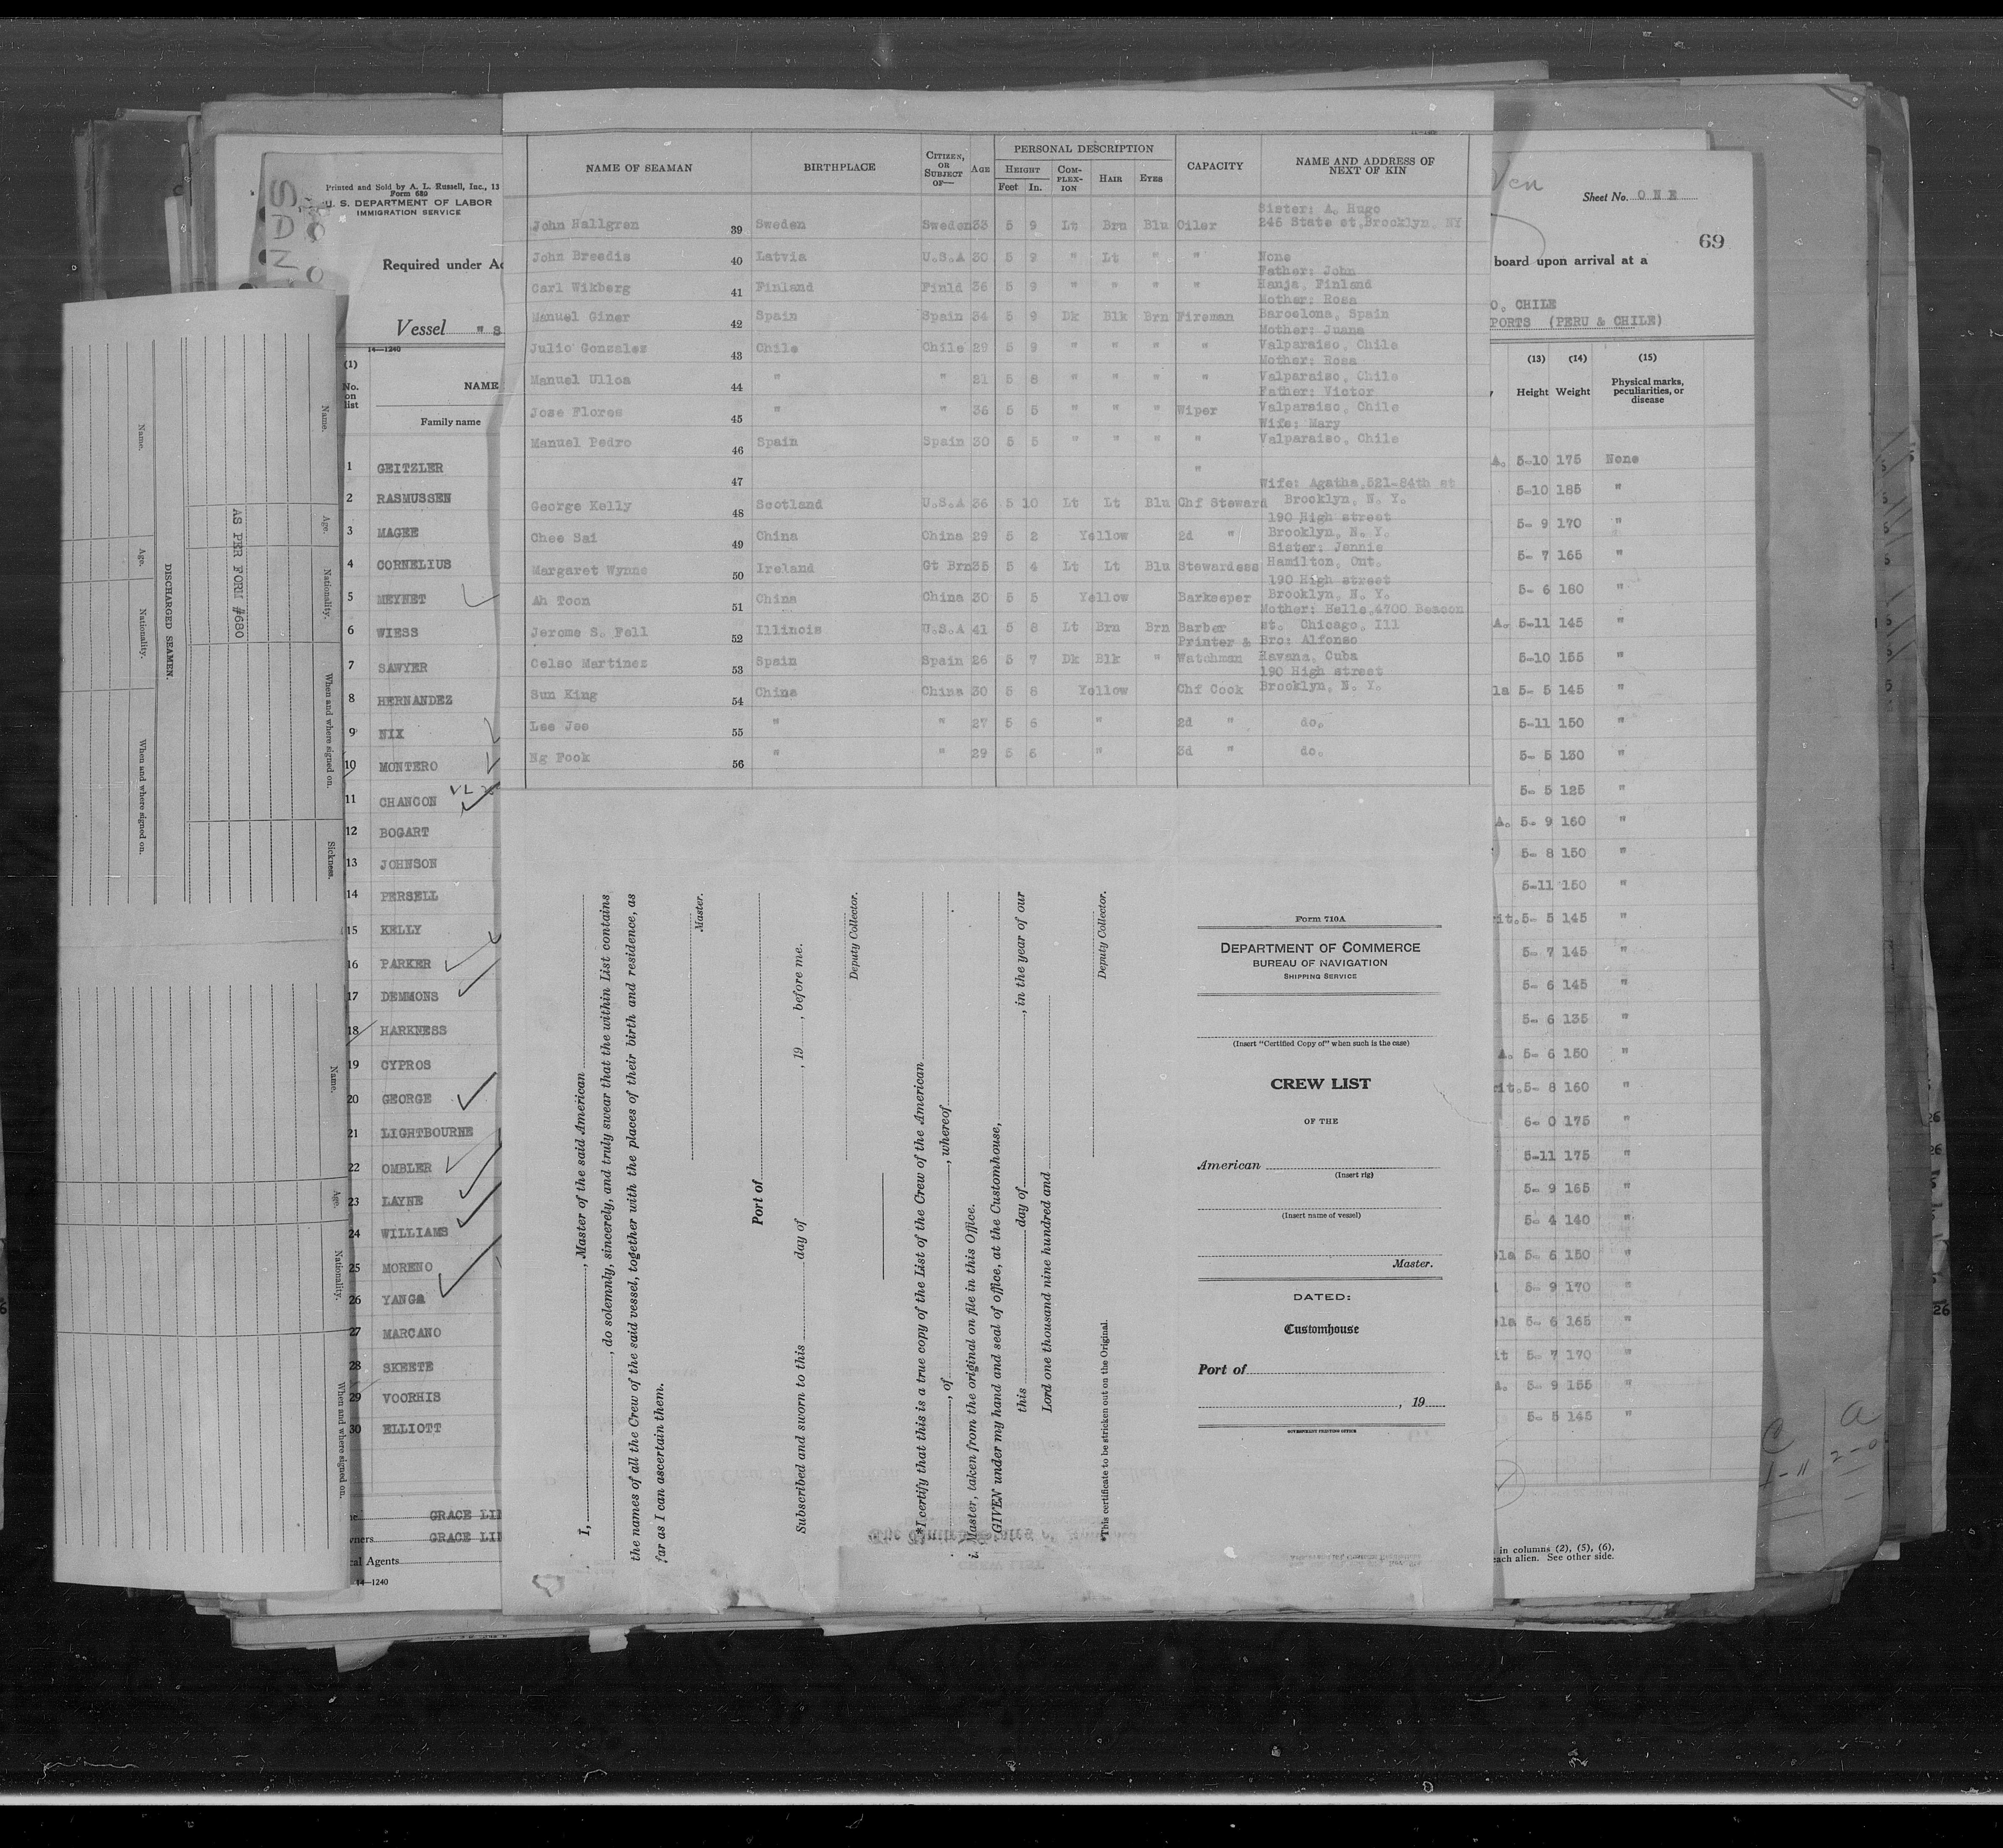 Printed and Sold by A. L. Russell, Inc., 13
Form 680
U. S. DEPARTMENT OF LABOR
IMMIGRATION SERVICE
Required under Ac
Vessel "S
14—1240
(1)
No. on list
NAME
Family name
1 GEITZLER
2 RASMUSSEN
3 MAGEE
4 CORNELIUS
5 MEYNET
6 WIESS
7 SAWYER
8 HERNANDEZ
9 NIX
10 MONTERO
11 CHANCON
12 BOGART
13 JOHNSON
14 PERSELL
15 KELLY
16 PARKER
17 DEMMONS
18 HARKNESS
19 CYPROS
20 GEORGE
21 LIGHTBOURNE
22 OMBLER
23 LAYNE
24 WILLIAMS
25 MORENO
26 YANGA
27 MARCANO
28 SKEETE
29 VOORHIS
30 ELLIOTT
GRACE LIN
wners GRACE LIN
cal Agents
14—1240
Name. Age. Nationality. When and where signed on. Sickness.
AS PER FORM #680
DISCHARGED SEAMEN.
Name. Age. Nationality. When and where signed on.
Name. Age. Nationality. When and where signed on.
NAME OF SEAMAN BIRTHPLACE CITIZEN, OR SUBJECT OF— AGE PERSONAL DESCRIPTION CAPACITY NAME AND ADDRESS OF NEXT OF KIN
HEIGHT COM-PLEX-ION HAIR EYES
Feet In.
Sister: A. Hugo
John Hallgren 39 Sweden Sweden 33 5 9 Lt Brn Blu Oiler 246 State st, Brooklyn, NY
John Breedis 40 Latvia U.S.A 30 5 9 " Lt " " None
Father: John
Carl Wikberg 41 Finland Finld 36 5 9 " " " " Hanja, Finland
Mother: Rosa
Manuel Giner 42 Spain Spain 34 5 9 Dk Blk Brn Fireman Barcelona, Spain
Mother: Juana
Julio Gonzales 43 Chile Chile 29 5 9 " " " " Valparaiso, Chile
Mother: Rosa
Manuel Ulloa 44 " " 21 5 8 " " " " Valparaiso, Chile
Father: Victor
Jose Flores 45 " " 36 5 5 " " " Wiper Valparaiso, Chile
Wife: Mary
Manuel Pedro 46 Spain Spain 30 5 5 " " " " Valparaiso, Chile
47 "
Wife: Agatha, 521-84th st
George Kelly 48 Scotland U.S.A 36 5 10 Lt Lt Blu Chf Steward Brooklyn, N. Y.
190 High street
Chee Sai 49 China China 29 5 2 Yellow 2d " Brooklyn, N. Y.
Sister: Jennie
Margaret Wynne 50 Ireland Gt Brn 35 5 4 Lt Lt Blu Stewardess Hamilton, Ont.
190 High street
Ah Toon 51 China China 30 5 5 Yellow Barkeeper Brooklyn, N. Y.
Mother: Helle, 4700 Beacon
Jerome S. Fell 52 Illinois U.S.A 41 5 8 Lt Brn Brn Barber st. Chicago, Ill
Printer & Bro: Alfonso
Celso Martinez 53 Spain Spain 26 5 7 Dk Blk " Watchman Havana, Cuba
190 High street
Sun King 54 China China 30 5 8 Yellow Chf Cook Brooklyn, N. Y.
Lee Jee 55 " " 27 5 6 " 2d " do.
Ng Fook 56 " " 29 5 6 " 3d " do.
I, , Master of the said American
, do solemnly, sincerely, and truly swear that the within List contains
the names of all the Crew of the said vessel, together with the places of their birth and residence, as
far as I can ascertain them.
Master.
Port of
Subscribed and sworn to this day of , 19 , before me.
Deputy Collector.
*I certify that this is a true copy of the List of the Crew of the American
, of , whereof
i. Master, taken from the original on file in this Office.
GIVEN under my hand and seal of office, at the Customhouse,
this day of , in the year of our
Lord one thousand nine hundred and
Deputy Collector.
*This certificate to be stricken out on the Original.
Form 710A
DEPARTMENT OF COMMERCE
BUREAU OF NAVIGATION
SHIPPING SERVICE
(Insert "Certified Copy of" when such is the case)
CREW LIST
OF THE
American
(Insert rig)
(Insert name of vessel)
Master.
DATED:
Customhouse
Port of
, 19
GOVERNMENT PRINTING OFFICE
Sheet No. ONE
69
board upon arrival at a
O, CHILE
PORTS (PERU & CHILE)
(13) (14) (15)
Height Weight Physical marks, peculiarities, or disease
A. 5-10 175 None
5-10 185 "
5- 9 170 "
5- 7 165 "
5- 6 160 "
A. 5-11 145 "
5-10 155 "
la 5- 5 145 "
5-11 150 "
5- 5 130 "
5- 5 125 "
A. 5- 9 160 "
5- 8 150 "
5-11 150 "
rit. 5- 5 145 "
5- 7 145 "
5- 6 145 "
5- 6 135 "
A. 5- 6 150 "
rit. 5- 8 160 "
6- 0 175 "
5-11 175 "
5- 9 165 "
5- 4 140 "
la 5- 6 150 "
5- 9 170 "
la 5- 6 165 "
it 5- 7 170 "
A. 5- 9 155 "
5- 5 145 "
in columns (2), (5), (6),
each alien. See other side.